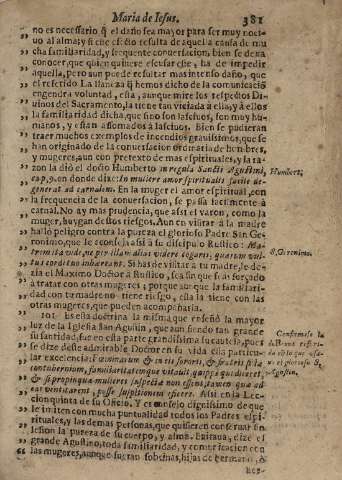 Maria de Iesus. 381
no es necessario q̃ el daño sea mayor para ser muy noci-
uo al alma; y si ese efecto resulta de aquella causa de mu
cha familiaridad, y frequente conuersacion, bien se dexa
conocer, que quien quisiere escusar el
aquella, pero aun puede resultar mas intenso daño, que
el referido La llaneza q̃ hemos dicho de la comunicaciō
engendra voluntad, esta, aunque mire los respectos Di-
uinos del Sacramento, la tiene tan viciada à ella; y à ellos
la familiaridad dicha, que sino son lasciuos, son muy hu-
manos, y estàn assomados à lasciuos. Bien se pudieran
traer muchos exemplos de incendios grauissimos, que se
han originado de la conuersacion ordinaria de hombres,
y mugeres, aun con pretexto de mas espirituales, y la ra-
zon la diò el docto Humberto in regula Sancti Agustini,
en donde dize: In muliere amor spiritualis facile de-
generat ad carnalem. En la muger el amor espiritual, con
la frequencia de la conuersacion, se passa facilmente à
carnal. No ay mas prudencia, que assi el varon, como la
muger, huygan destos riesgos. Aun en visitar à la madre
hallò peligro contra la pureza el glorioso Padre San Ge-
ronimo, que le aconseja assi à su discipulo Rustico: Ma-
trem ita vide, ne per illam alias videre cogaris, quarum vul-
tus cordi tuo inhæreant. Si has de visitar à tu madre, le de-
zia el Maximo Doctor à Rustico, sea sin que seas forçado
à tratar con otras mugeres; porque aunque la familiari-
dad con tu madre no tiene riesgo, esta la tiene con las
otras mugeres, que pueden acompañarla.
101 Es esta doctrina la misma, que enseñò la mayor
luz de la Iglesia San Agustin, que aun siendo tan grande
su santidad, fue en esta parte grandissima su cautela, pues
se dize deste admirable Doctor en su vida esta particu-
lar excelencia:
contubernium, familiaritatemque vitauit,
& si propinquæ mulieres suspectæ non essent, tamen quæ ad
eas ventitarent, posse suspitionem efficere. Assi en la Lec-
cion quinta de su Oficio. Y es consejo dignissimo de que
le imiten con mucha puntualidad todos los Padres espi-
rituales, y las demas personas, que quisieren conseruar sin
lesion la pureza de su cuerpo, y alma. Euitaua, dize el
grande Agustino, toda familiaridad, y comunicacion con
las mugeres, aunque fuessen sobrinas, hijas de hermano. A
Humbert.
S. Geronimo.
Agustin.